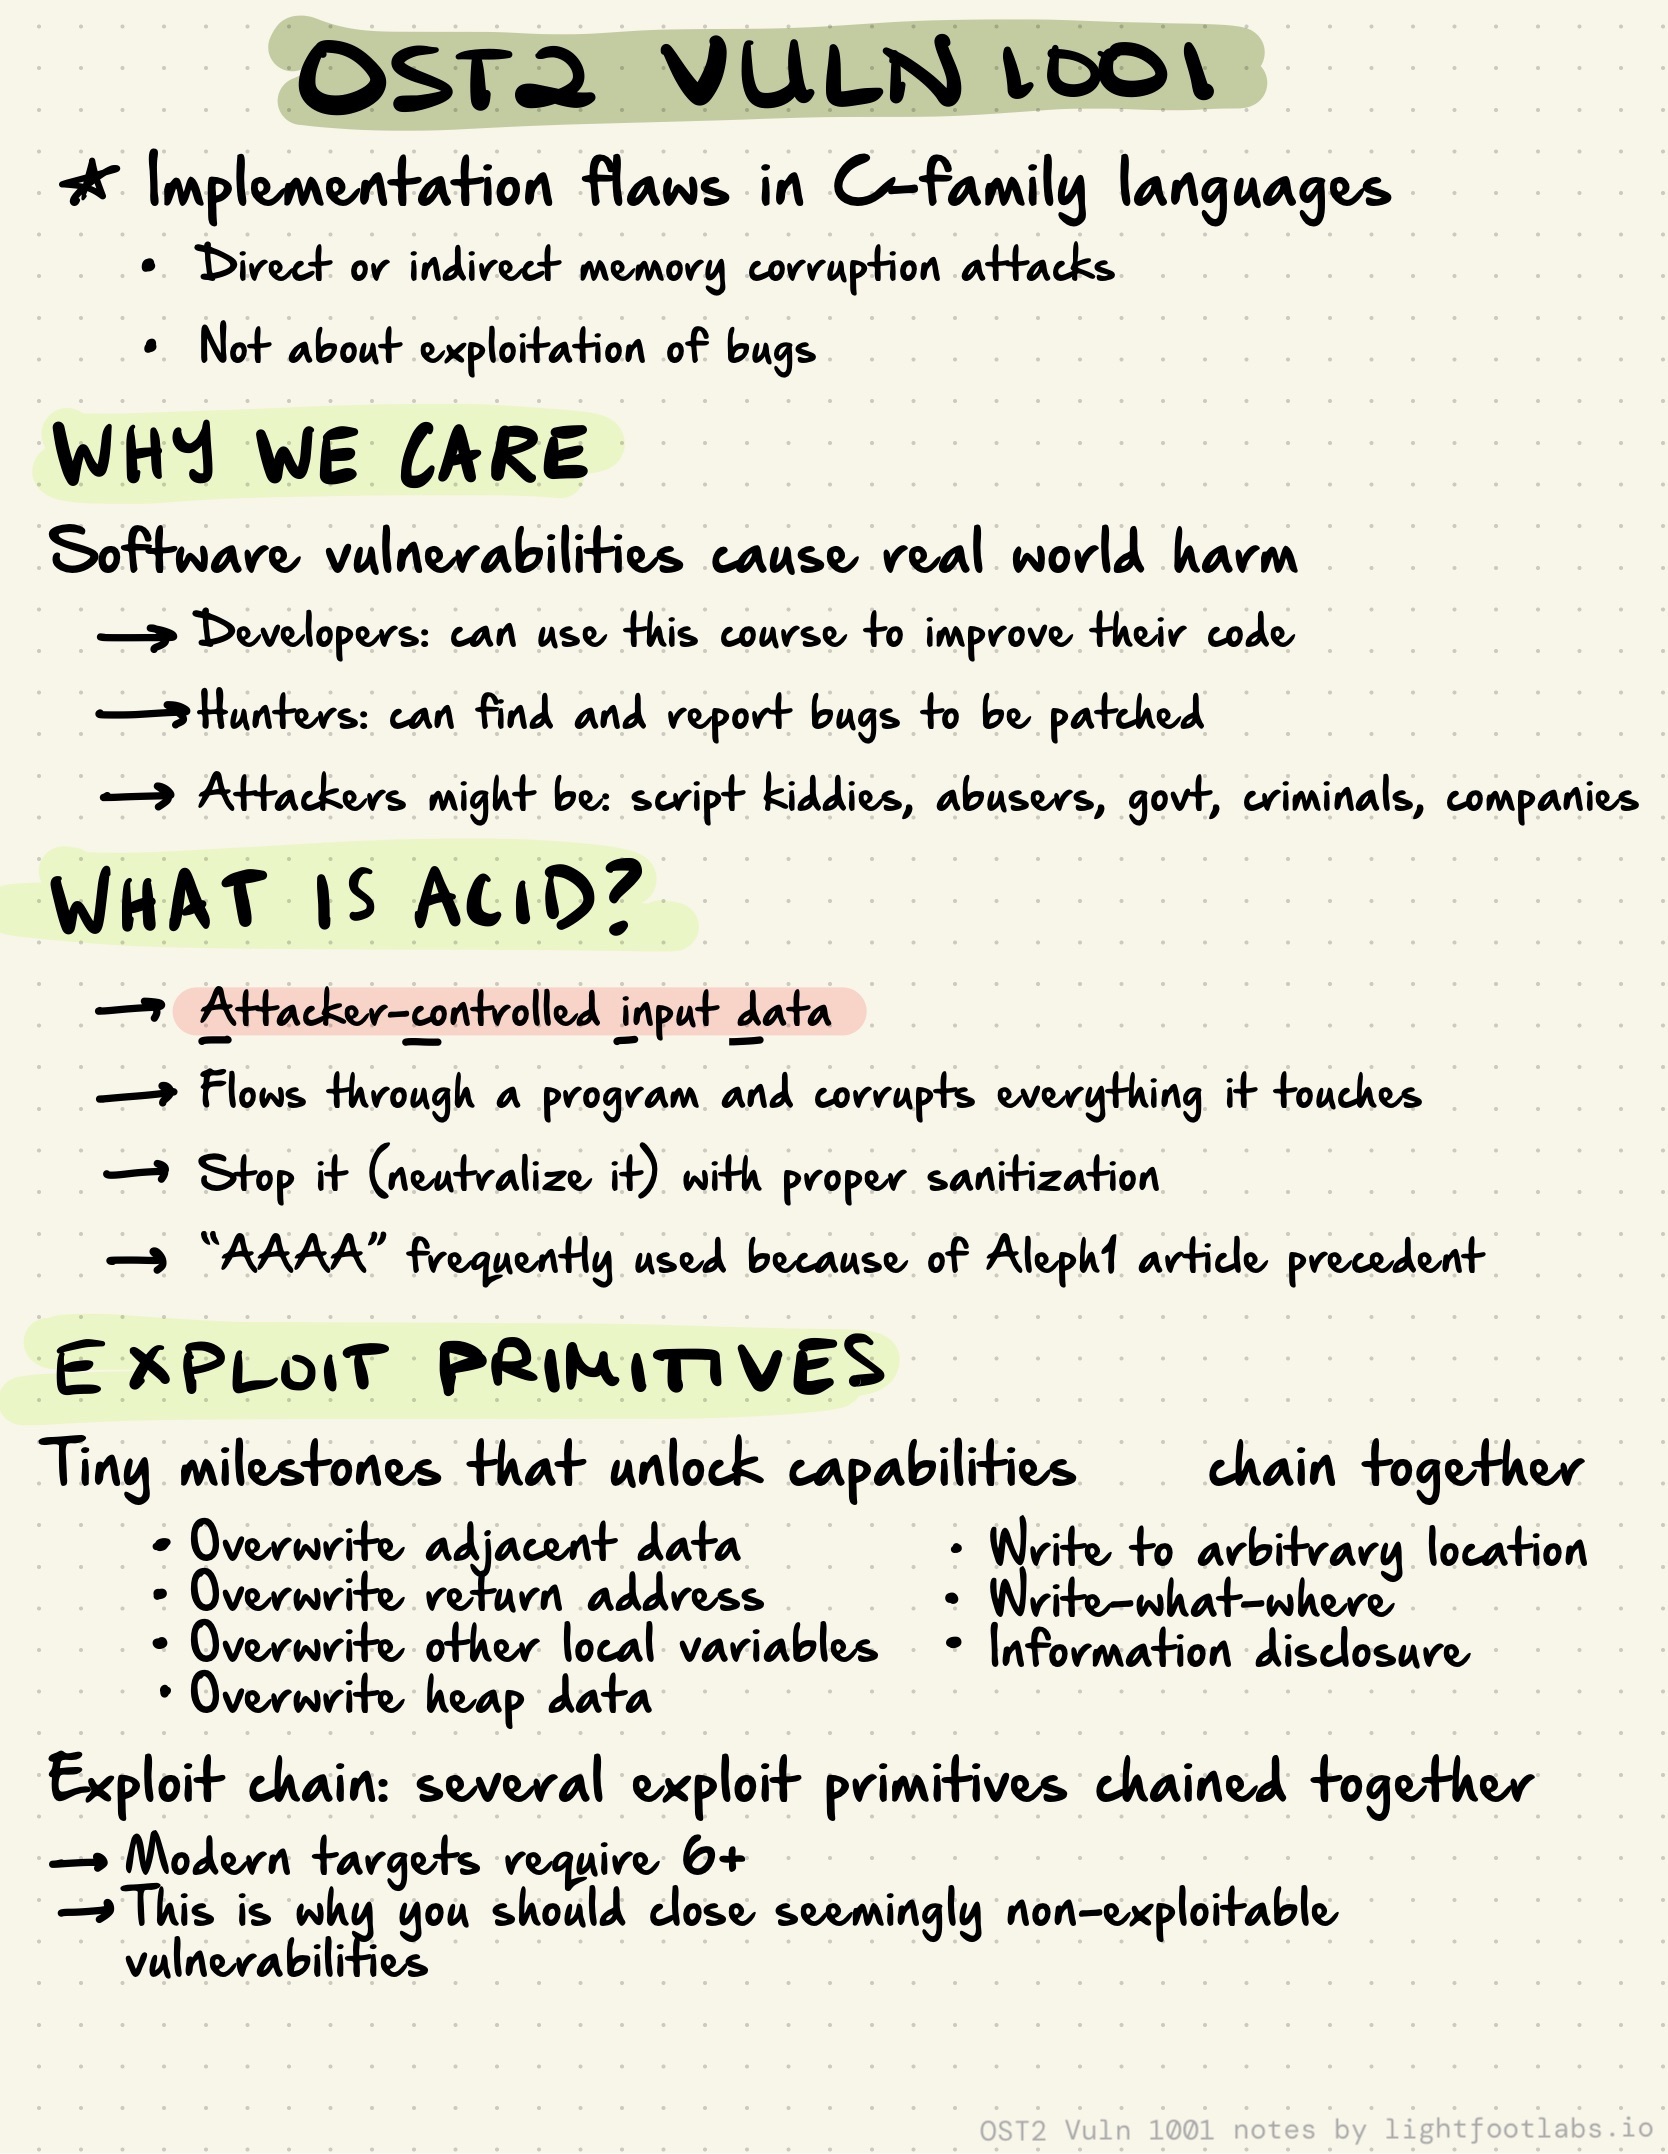 OST2 VULN 1001
★ Implementation flaws in C-family languages
• Direct or indirect memory corruption attacks
• Not about exploitation of bugs
WHY WE CARE
Software vulnerabilities cause real world harm
→ Developers: can use this course to improve their code
→ Hunters: can find and report bugs to be patched
→ Attackers might be: script kiddies, abusers, govt, criminals, companies
WHAT IS ACID?
→ Attacker-controlled input data
→ Flows through a program and corrupts everything it touches
→ Stop it (neutralize it) with proper sanitization
→ “AAAA” frequently used because of Aleph1 article precedent
EXPLOIT PRIMITIVES
Tiny milestones that unlock capabilities chain together
• Overwrite adjacent data
• Overwrite return address
• Overwrite other local variables
• Overwrite heap data
• Write to arbitrary location
• Write-what-where
• Information disclosure
Exploit chain: several exploit primitives chained together
→ Modern targets require 6+
→ This is why you should close seemingly non-exploitable
vulnerabilities
OST2 Vuln 1001 notes by lightfootlabs.io